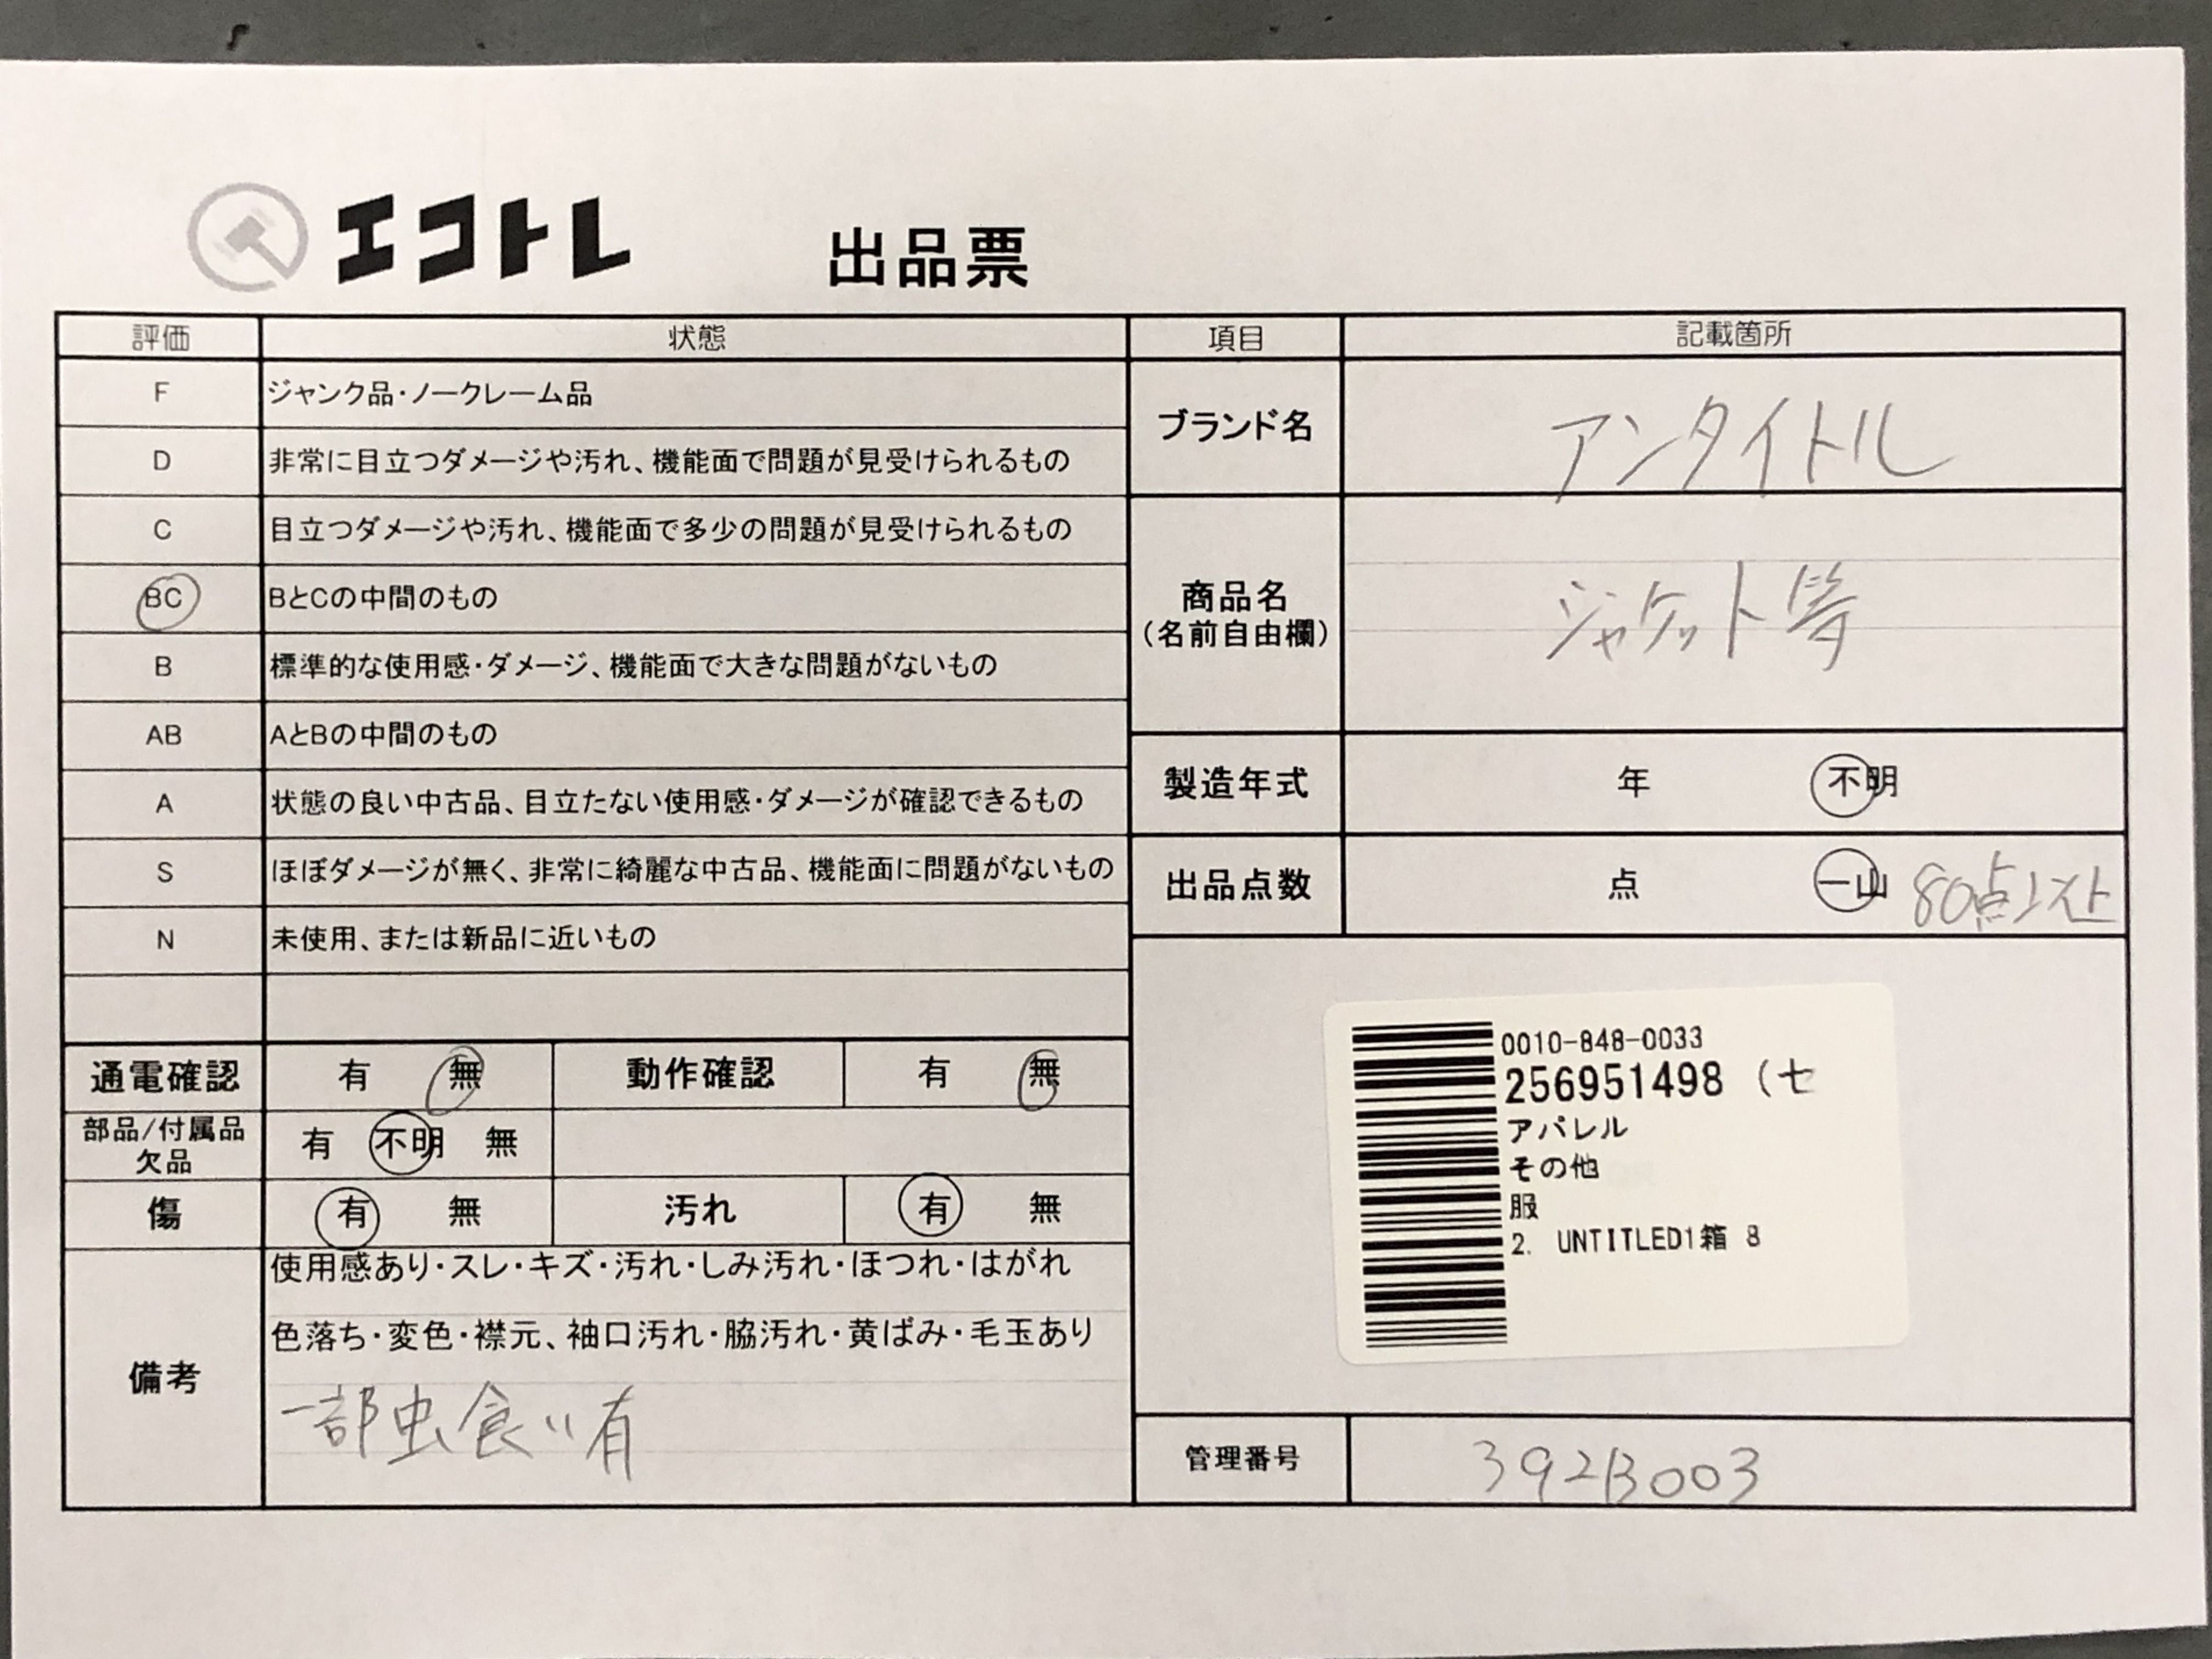 エコトレ 出品票
評価 状態 項目 記載箇所
F ジャンク品・ノークレーム品
D 非常に目立つダメージや汚れ、機能面で問題が見受けられるもの
C 目立つダメージや汚れ、機能面で多少の問題が見受けられるもの
BC BとCの中間のもの
B 標準的な使用感・ダメージ、機能面で大きな問題がないもの
AB AとBの中間のもの
A 状態の良い中古品、目立たない使用感・ダメージが確認できるもの
S ほぼダメージが無く、非常に綺麗な中古品、機能面に問題がないもの
N 未使用、または新品に近いもの
通電確認 有 無 動作確認 有 無
部品/付属品
欠品 有 不明 無
傷 有 無 汚れ 有 無
備考
使用感あり・スレ・キズ・汚れ・しみ汚れ・ほつれ・はがれ
色落ち・変色・襟元、袖口汚れ・脇汚れ・黄ばみ・毛玉あり
一部虫食い有
ブランド名 アンタイトル
商品名
(名前自由欄) ジャケット等
製造年式 年 不明
出品点数 点 一山 80点以上
0010-848-0033
256951498 (セ
アパレル
その他
服
2. UNTITLED1箱 8
管理番号 392B003